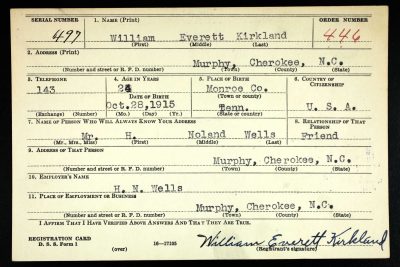 SERIAL NUMBER 1. NAME (Print) ORDER NUMBER
497 William Everett Kirkland 446
(First) (Middle) (Last)
2. ADDRESS (Print)
Murphy, Cherokee, N.C.
(Number and street or R. F. D. number) (Town) (County) (State)
3. TELEPHONE 4. AGE IN YEARS 5. PLACE OF BIRTH 6. COUNTRY OF CITIZENSHIP
143 24 Monroe Co.
DATE OF BIRTH (Town or county)
Oct.28,1915 Tenn. U. S. A.
(Exchange) (Number) (Mo.) (Day) (Yr.) (State or country)
7. NAME OF PERSON WHO WILL ALWAYS KNOW YOUR ADDRESS 8. RELATIONSHIP OF THAT PERSON
Mr. H. Noland Wells Friend
(Mr., Mrs., Miss) (First) (Middle) (Last)
9. ADDRESS OF THAT PERSON
Murphy, Cherokee, N.C.
(Number and street or R. F. D. number) (Town) (County) (State)
10. EMPLOYER'S NAME
H. N. Wells
11. PLACE OF EMPLOYMENT OR BUSINESS
Murphy, Cherokee, N.C.
(Number and street or R. F. D. number) (Town) (County) (State)
I AFFIRM THAT I HAVE VERIFIED ABOVE ANSWERS AND THAT THEY ARE TRUE.
REGISTRATION CARD William Everett Kirkland
D. S. S. Form 1 16—17105 (Registrant's signature)
(over)